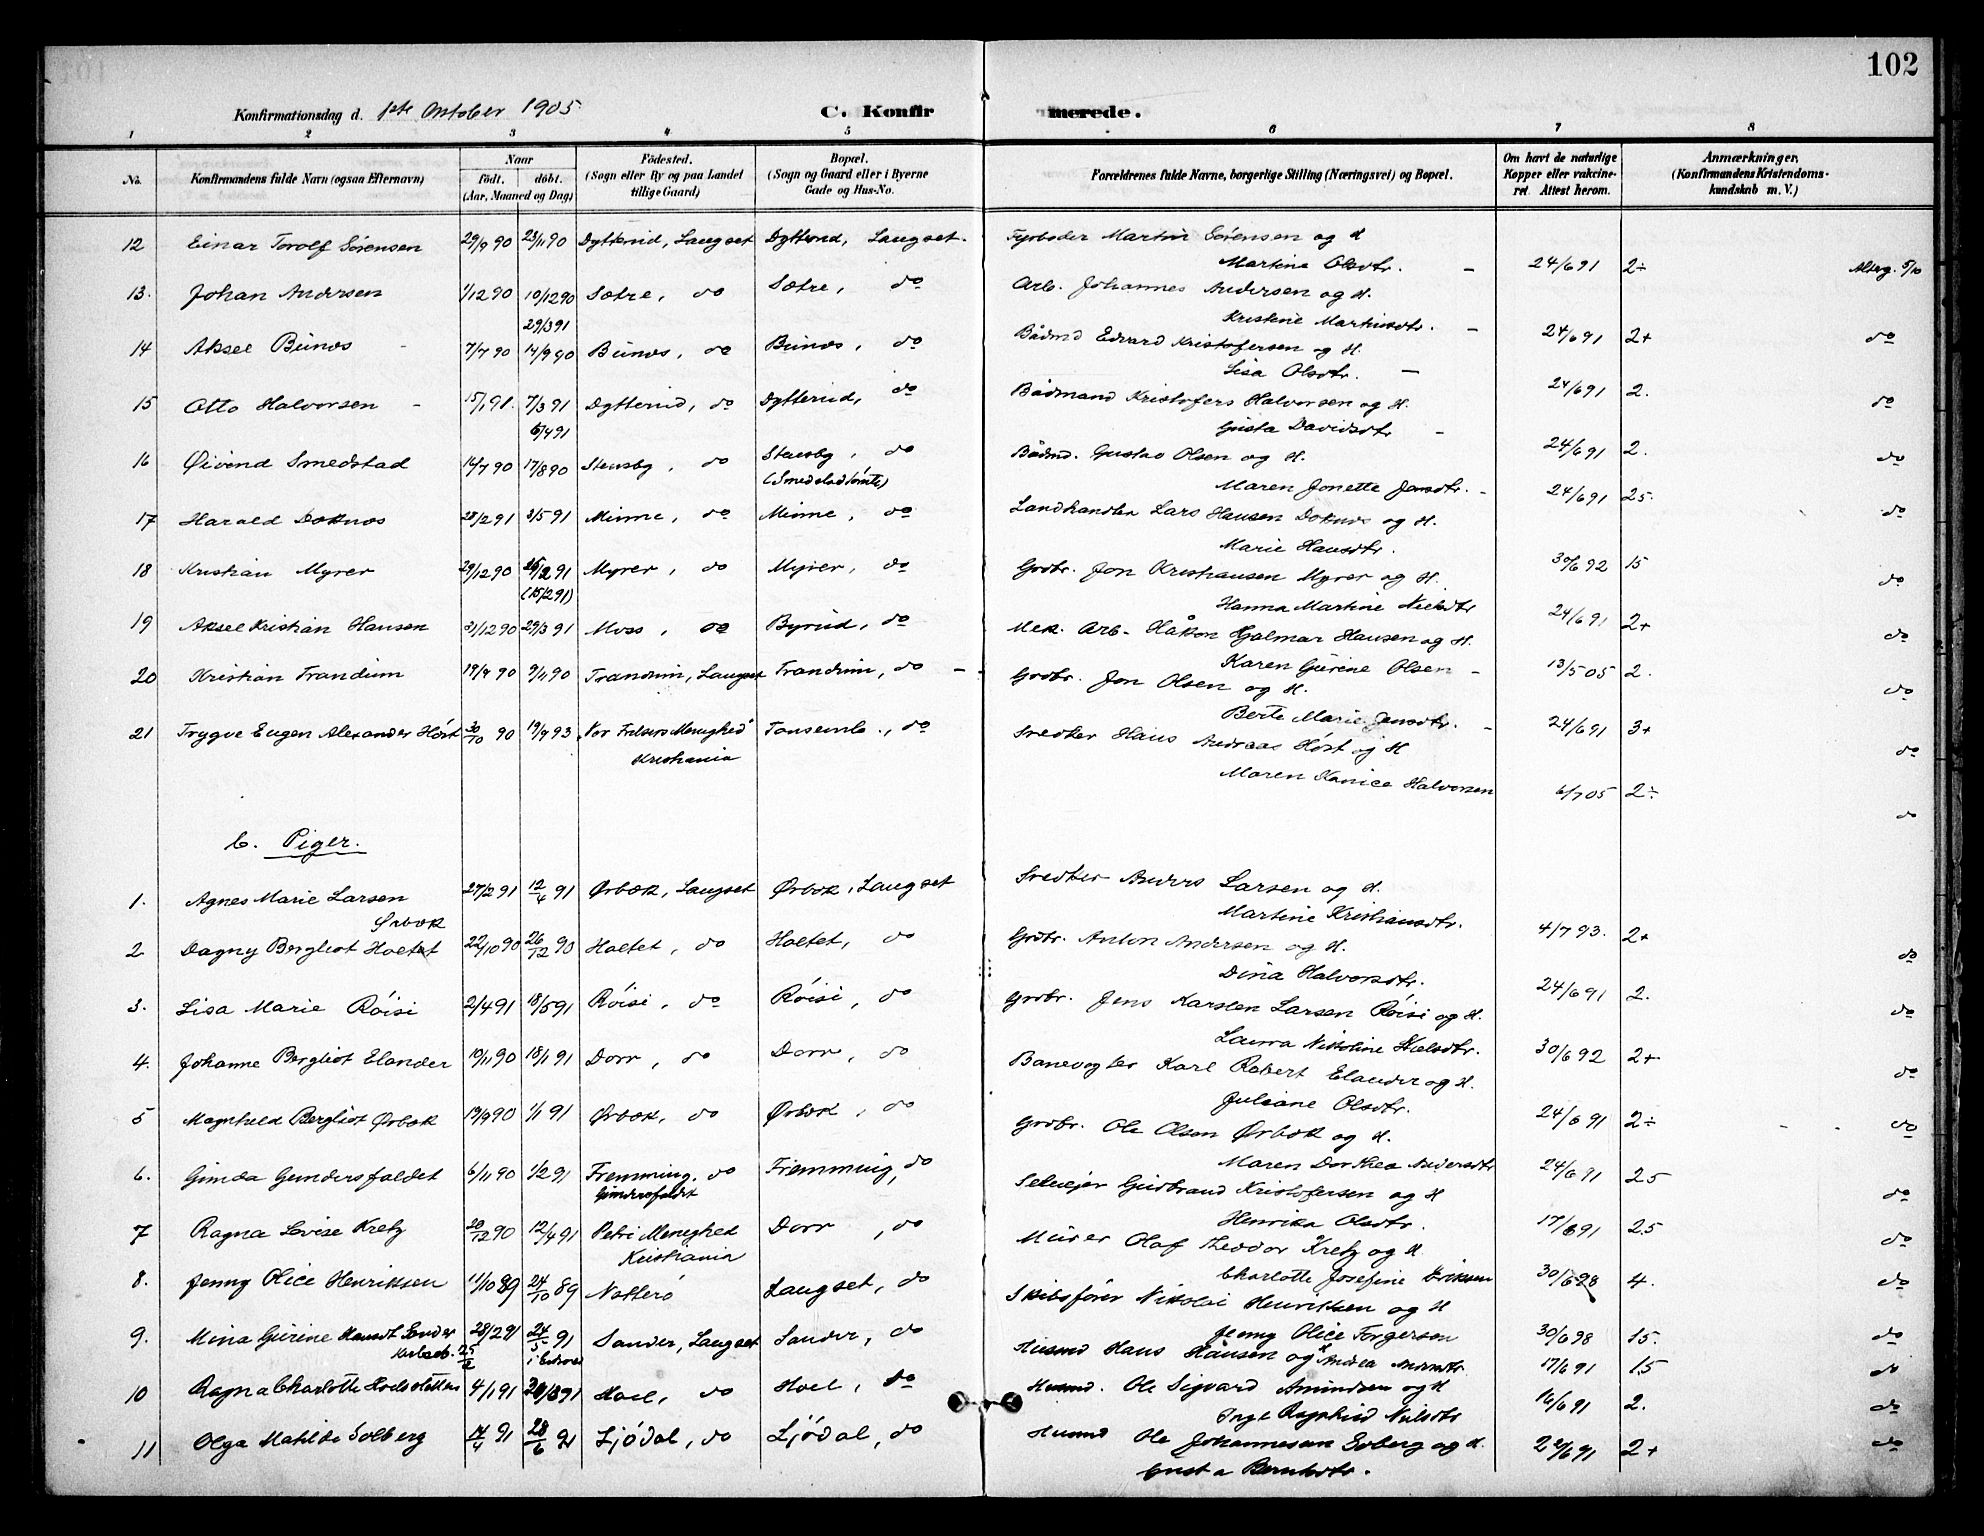 102
Konfirmationsdag d. 1ste Oktober 1905
C. Konfirmerede.
1 2 3 4 5 6 7 8
No.
Konfirmandens fulde Navn (ogsaa Efternavn)
Naar
födt. döbt.
(Aar, Maaned og Dag)
Födested.
(Sogn eller By og paa Landet
tillige Gaard)
Bopæl.
(Sogn og Gaard eller i Byerne
Gade og Hus-No.
Forældrenes fulde Navne, borgerlige Stilling (Næringsvei) og Bopæl.
Om havt de naturlige
Kopper eller vakcine-
ret. Attest herom.
Anmærkninger,
(Konfirmandens Kristendoms-
kundskab m. V.)
12 Einar Torolf Sörensen 29/9 90 23/11 90 Dytterud, Langset Dytterud, Langset. Fyrböder Martin Sörensen og H
Martine Olsdtr. - 24/6 91 2÷ Alterg. 5/10
13. Johan Andersen 1/12 90 10/12 90 Sætre, do Sætre, do Arb. Johannes Andersen og H.
29/3 91
Kristine Martinsdtr. - 24/6 91 2+ do
14 Aksel Bunæs 7/7 90 14/9 90 Bunæs, do Bunæs, do Bådmd Edvard Kristofersen og H.
Lisa Olsdtr. - 24/6 91 2. do
15 Otto Halvorsen - 15/1 91. 7/3 91 Dytterud, do Dytterud, do Bådmand Kristofers Halvorsen og H.
6/4 91
Gusta Davidsdtr - 24/6 91 2. do
16 Øivind Smedstad 14/7 90 17/8 90 Stensby, do Stensby, do Bådmd. Gustav Olsen og H.
(Smedstadtomte)
Maren Jonette Jensdtr. - 24/6 91 25. do
17 Harald Doknæs 28/2 91 3/5 91 Minne, do Minne, do Landhandler Lars Hansen Doknæs og H.
Marie Hansdtr. 30/6 92 15 do
18 Kristian Myrer 29/12 90 15/2 91 Myrer, do Myrer, do Grdbr. Jon Kristiansen Myrer og H.
(15/2 91)
Hanna Martine Nielsdtr 24/6 91 2+ do
19 Aksel Kristian Hansen 31/12 90 29/3 91 Moss, do Byrud, do Mek. Arb. Håkon Hjalmar Hansen og H.
Karen Gurine Olsen - 13/5 05 2. do
20 Kristian Trandum 19/9 90 9/11 90 Trandum, Langset Trandum, do - Grdbr. Jon Olsen og H.
Berte Marie Jensdtr. - 24/6 91 3+ do
21 Trygve Eugen Alexander Höst 30/10 90 19/9 93 "Vor Frelsers Menighed" Tonsemb., do Snedker Hans Andreas Höst og H
Kristiania
Maren Kanice Halvorsen 6/7 05 2÷ do
b. Piger.
1. Agnes Marie Larsen 27/2 91 12/4 91 Ørbæk, Langset Ørbæk, Langset Snedker Anders Larsen og H.
Ørbæk
Martine Kristiansdtr. 4/7 93. 2+ do
2 Dagny Bergliot Holtet 22/10 90 26/12 90 Holtet, do Holtet, do Grdbr. Anton Andersen og H.
Dina Halvorsdtr. 24/6 91 2. do
3. Lisa Marie Röisi 2/4 91 18/5 91 Röisi, do Röisi, do Grdbr. Jens Karsten Larsen Röisi og H.
Laura Nikoline Nielsdtr. 30/6 92 2+ do
4. Johanne Bergliot Elander 19/11 90 18/1 91 Dorr, do Dorr, do Banevogter Karl Robert Elander og H.
Juliane Olsdtr. 24/6 91 2÷ do
5 Magnhild Bergliot Ørbæk 13/9 90 1/1 91 Ørbæk, do Ørbæk, do Grdbr. Ole Olsen Ørbæk og H.
Maren Dorthea Andersdtr 24/6 91 25 do
6. Gunda Gundersfaldet 6/11 90 1/2 91 Fremming, do Fremming, do Selveier Gudbrand Kristofersen og H
Gundersfaldet
Henrika Olsdtr. 17/6 91 2.5 do
7 Ragna Lovise Kretz 20/12 90 12/4 91 Petri Menighed Dorr, do Murer Olaf Theodor Kretz og H
Kristiania
Charlotte Josefine Eriksen 30/6 98 4. do
8. Jenny Olice Henriksen 11/10 89 24/10 89 Nötterö Langset, do Skibsförer Nikolai Henriksen og H
Jenny Olice Torgersen 30/6 98 15. do
9. Mina Gurine Hansdt Sander 28/2 91 24/5 91 Sander, Langset Sander, do Husmd Hans Hansen og H Andrea Andersdtr 17/6 91 15 do
10 Ragna Charlotte Hoelsletten 4/1 91 29/3 91 Hoel, do Hoel, do Husmd. Ole Sigvard Amundsen og H
Inge Ragnhild Nielsdtr 16/6 91 2. do
11 Olga Matilde Solberg 14/4 91 28/6 91 Ljödal, do Ljödal, do Husmd Ole Johannesen Solberg og H. 2+ do
Gusta Berntsdtr.